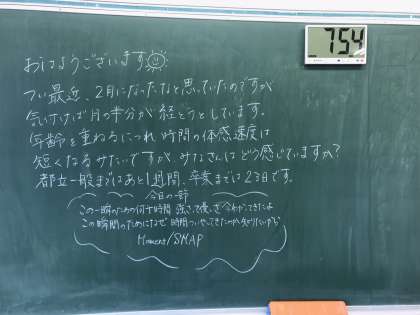 おはようございます
754
つい最近、2月になったなと思っていたのですが
気づけば月の半分が経とうとしています。
年齢を重ねるにつれ時間の体感速度は
短くなるみたいですが、みなさんはどう感じていますか?
都立一般まではあと1週間、卒業までは23日です。
今日の一節
この一瞬のための何千時間 強さって優しさ 今わかってきたよ
この瞬間のためになぜ 時間ついやしてきたのか 知りたいから
Moment/SMAP